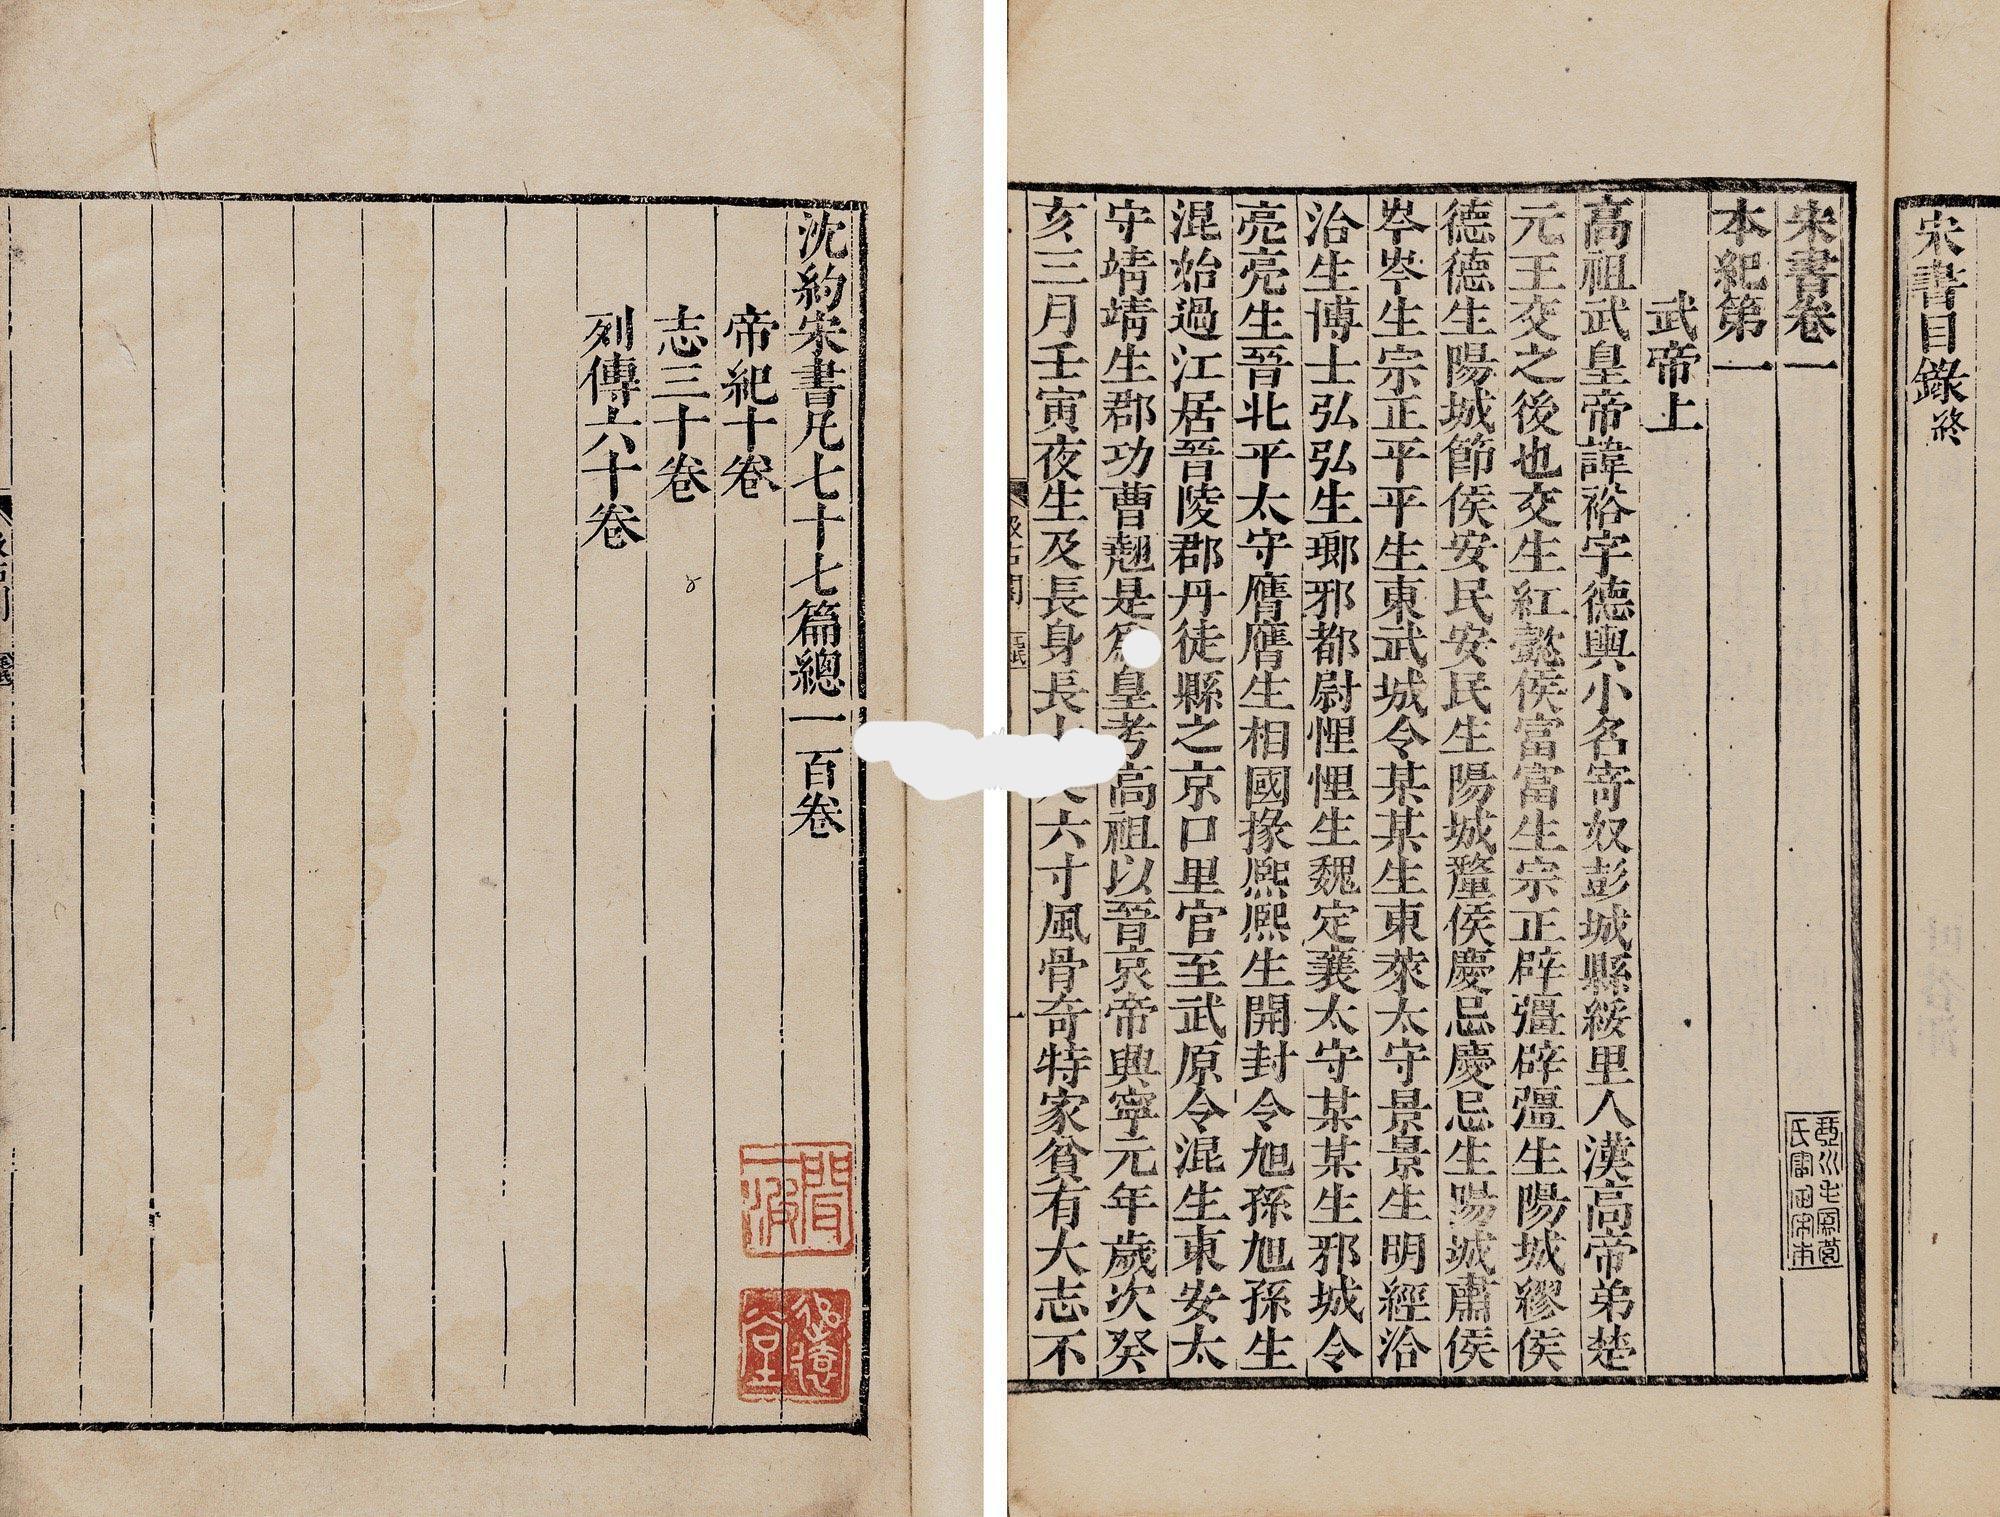 沈約宋書凡七十七篇總一百卷
帝紀十卷
志三十卷
列傳六十卷
宋書目錄終
宋書卷一
琴川毛鳳苞
氏審定宋本
本紀第一
武帝上
高祖武皇帝諱裕字德輿小名寄奴彭城縣綏里人漢高帝弟楚
元王交之後也交生紅懿侯富富生宗正辟彊辟彊生陽城繆侯
德德生陽城節侯安民安民生陽城釐侯慶忌慶忌生陽城肅侯
岑岑生宗正平平生東武城令某某生東萊太守景景生明經洽
治生博士弘弘生瑯邪都尉悝悝生魏定襄太守某某生邪城令
亮亮生晉北平太守膺膺生相國掾熙熙生開封令旭孫旭孫生
混始過江居晉陵郡丹徒縣之京口里官至武原令混生東安太
守靖靖生郡功曹翹是爲皇考高祖以晉哀帝興寧元年歲次癸
亥三月壬寅夜生及長身長六寸風骨奇特家貧有大志不